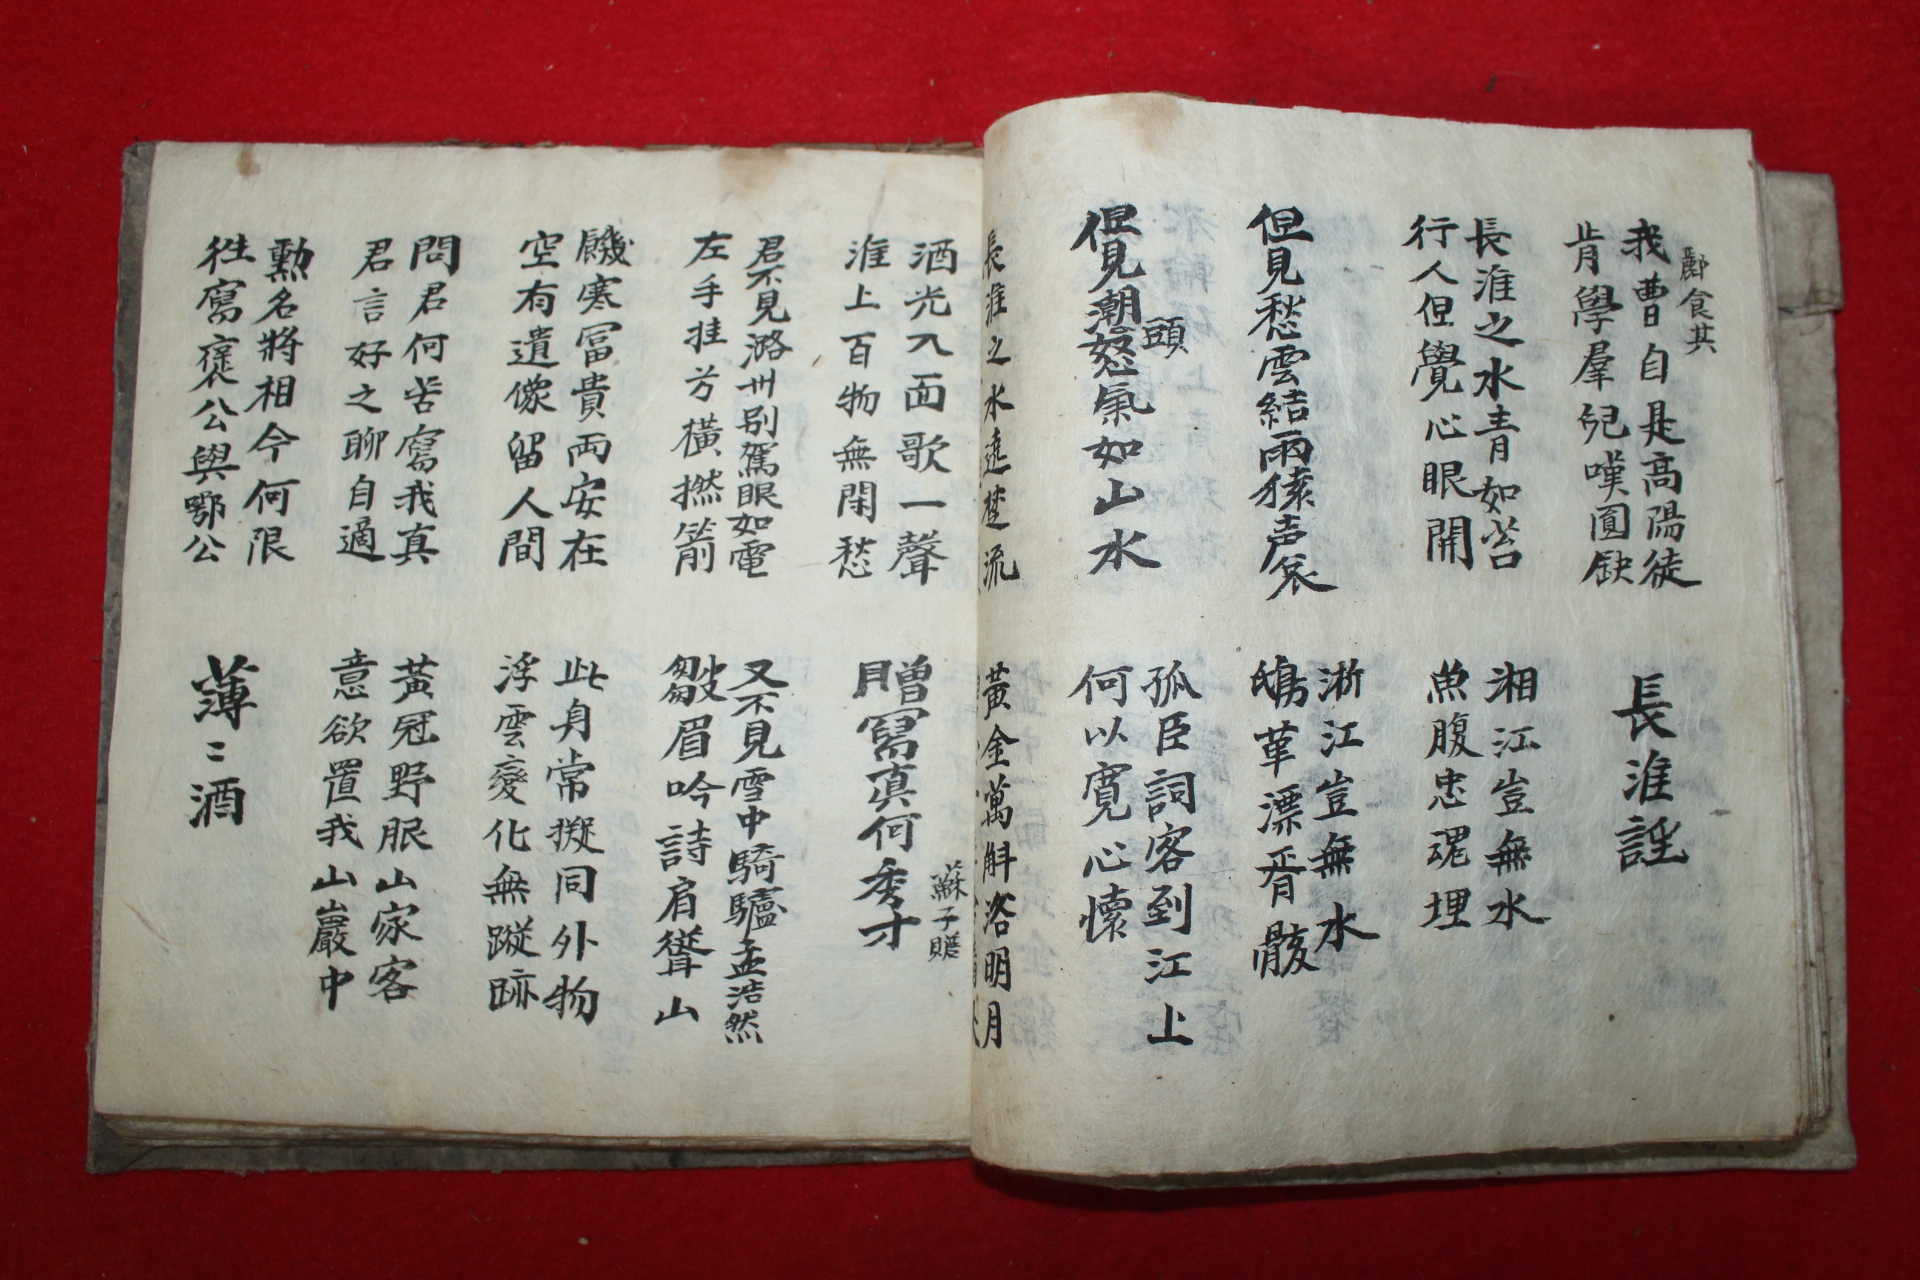 酈食其
我曹自是高陽徒
肯學羣兒嘆圓缺
長淮謠
長淮之水青如苔
行人但覺心眼開
湘江豈無水
魚腹忠魂埋
但見愁雲結雨猿声哀
浙江豈無水
鴟革漂胥骸
但見潮頭怒氣如山水
孤臣詞客到江上
何以寬心懷
長淮之水遶楚流
黃金萬斛浴明月
酒光入面歌一聲
淮上百物無閑愁
贈寫真何秀才
蘇子瞻
君不見潞州別駕眼如電
左手挂弓橫撚箭
又不見雪中騎驢孟浩然
皺眉吟詩肩聳山
饑寒冨貴兩安在
空有遺像留人間
此身常擬同外物
浮雲變化無蹤跡
問君何苦寫我真
君言好之聊自適
黃冠野服山家客
意欲置我山巖中
勳名將相今何限
徃寫褒公與鄂公
薄〻酒